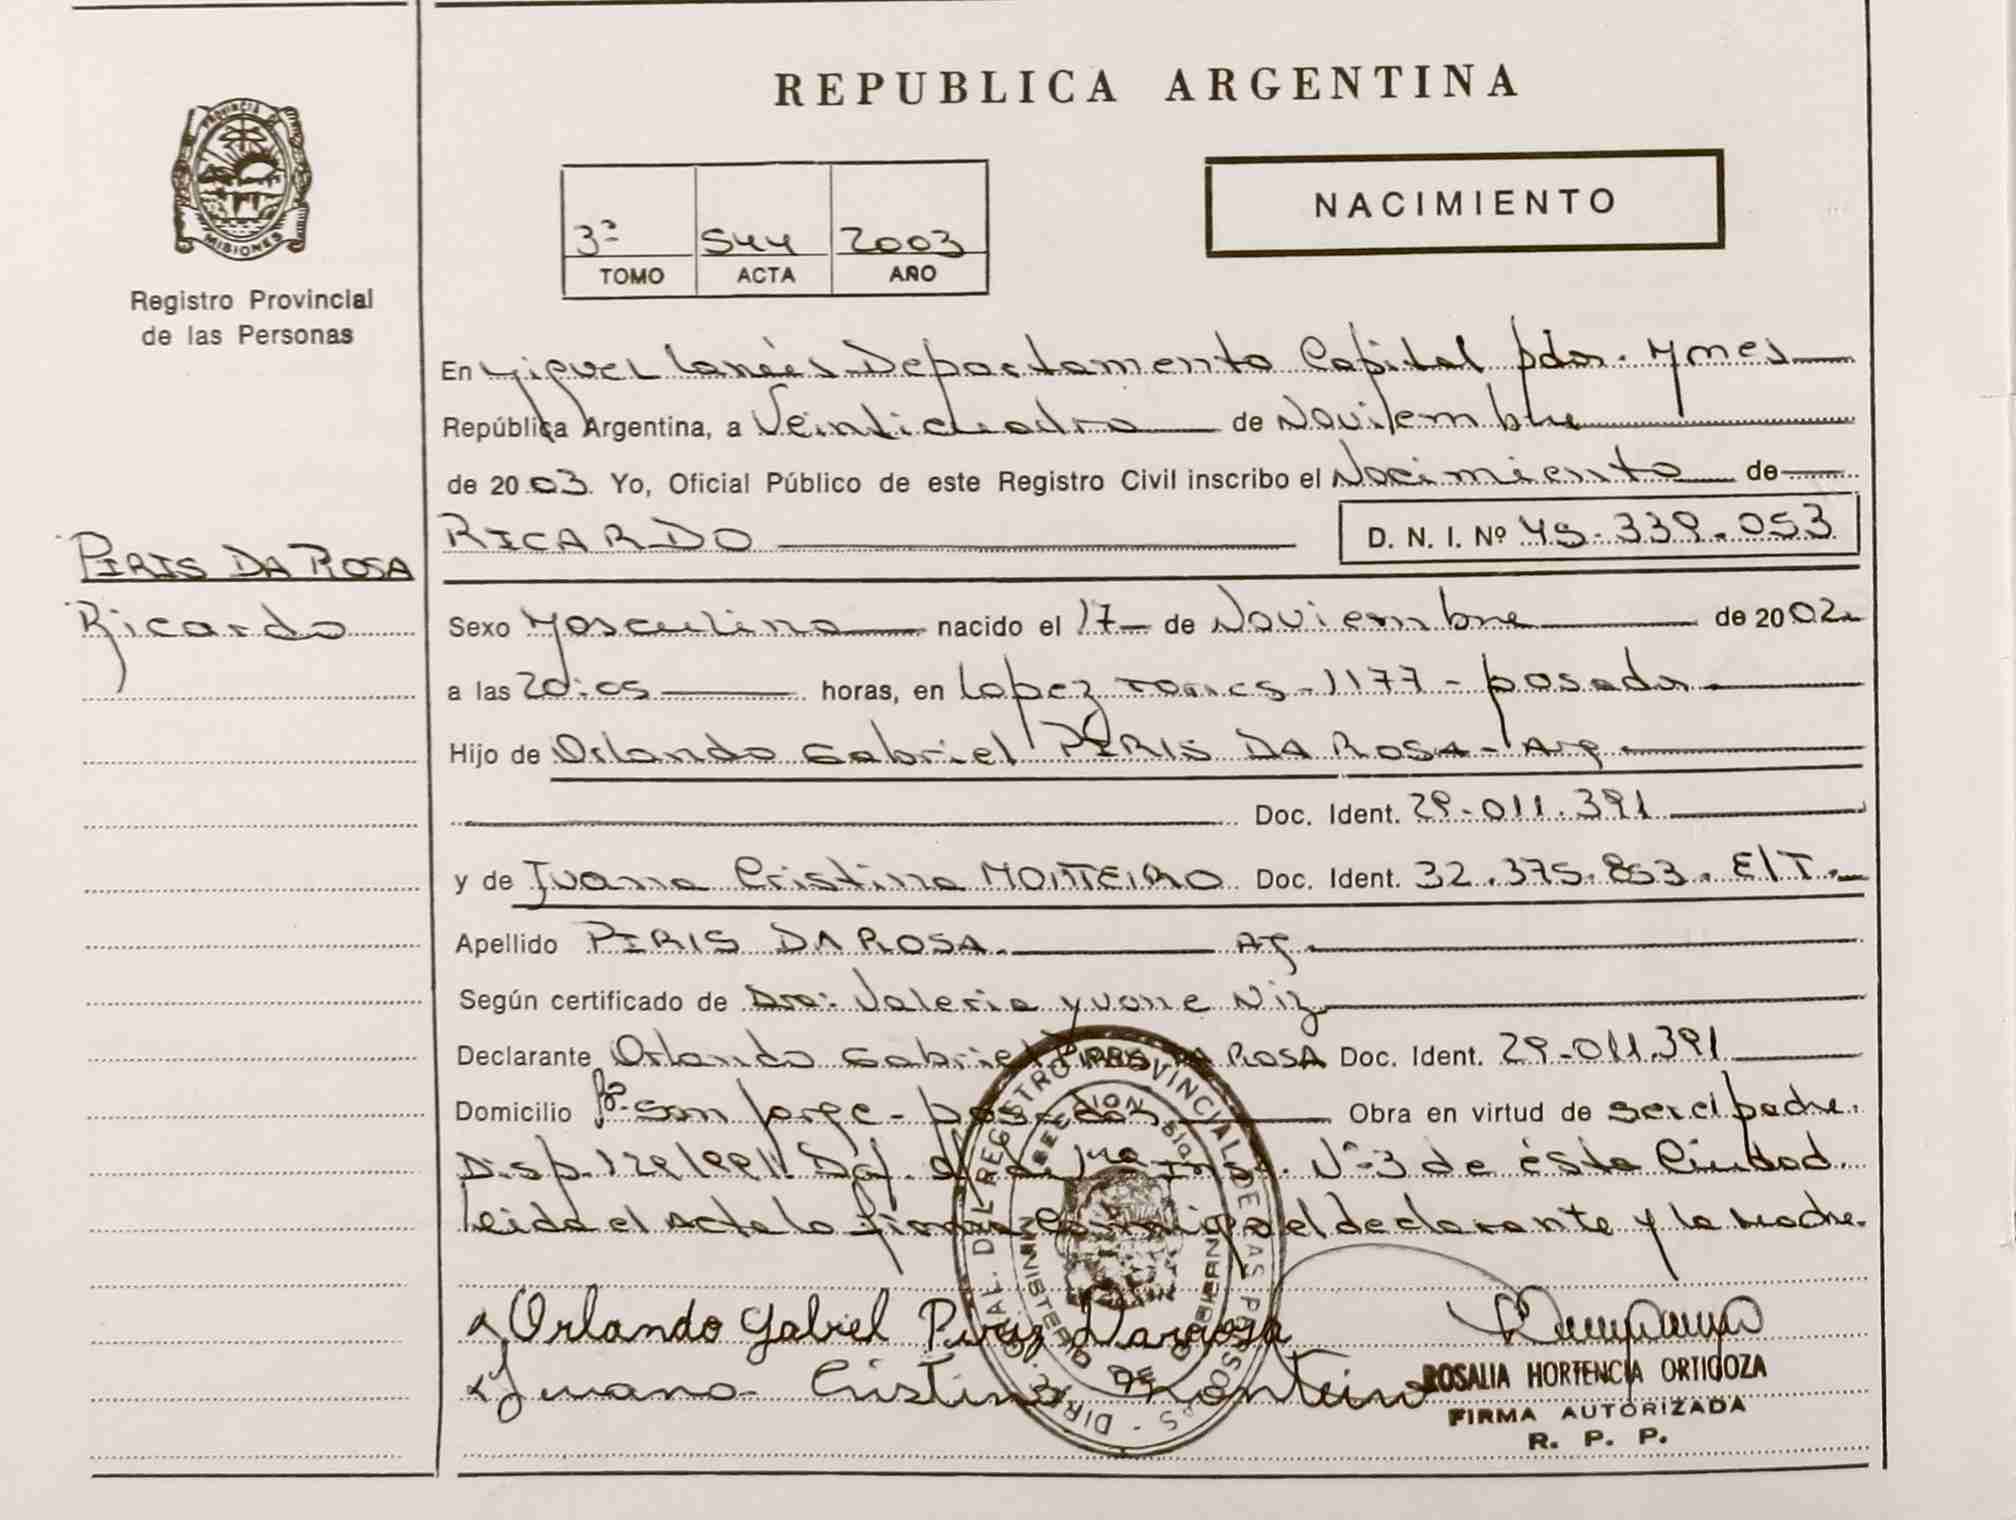 REPUBLICA ARGENTINA
PROVINCIA DE
MISIONES
Registro Provincial
de las Personas
NACIMIENTO
3ª 544 2003
TOMO ACTA AÑO
En Miguel Lanús Departamento Capital pdas. Mnes
República Argentina, a Veinticuatro de Noviembre
de 2003. Yo, Oficial Público de este Registro Civil inscribo el Nacimiento de
PIRIS DA ROSA
Ricardo
RICARDO D. N. I. Nº 45.339.053
Sexo Masculino nacido el 17 de Noviembre de 2002
a las horas, en Lopez Torres - 1177 - posadas
Hijo de Orlando Gabriel PIRIS DA ROSA - Arg
Doc. Ident. 29.011.391
y de Juana Cristina MONTEIRO Doc. Ident. 32.375.853. E/T.
Apellido PIRIS DA ROSA. Ag
Según certificado de Dra: Valeria yvone Niz
Declarante Orlando Gabriel PIRIS DA ROSA Doc. Ident. 29.011.391
Domicilio Bº San Jorge - posadas Obra en virtud de ser el padre.
Disp. 129/991. Nº 3 de ésta Ciudad.
leida el Acta la firma el declarante y la madre.
Orlando Gabriel Piriz Darrosa
Juana Cristina Monteiro
DIR. GRAL. DEL REGISTRO PROVINCIAL DE LAS PERSONAS
MINISTERIO DE GOBIERNO
ROSALIA HORTENCIA ORTIGOZA
FIRMA AUTORIZADA
R. P. P.